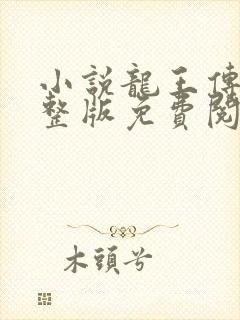 小說龍王傳
整版免費閱
木頭兮